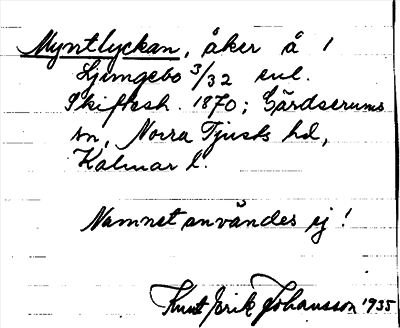 Myntlyckan, åker å 1
Ljungebo 3/32 enl.
Skiftesh. 1870; Gärdserums
sn, Norra Tjusts hd,
Kalmar l.
Namnet användes ej!
Knut Erik Johansson 1935